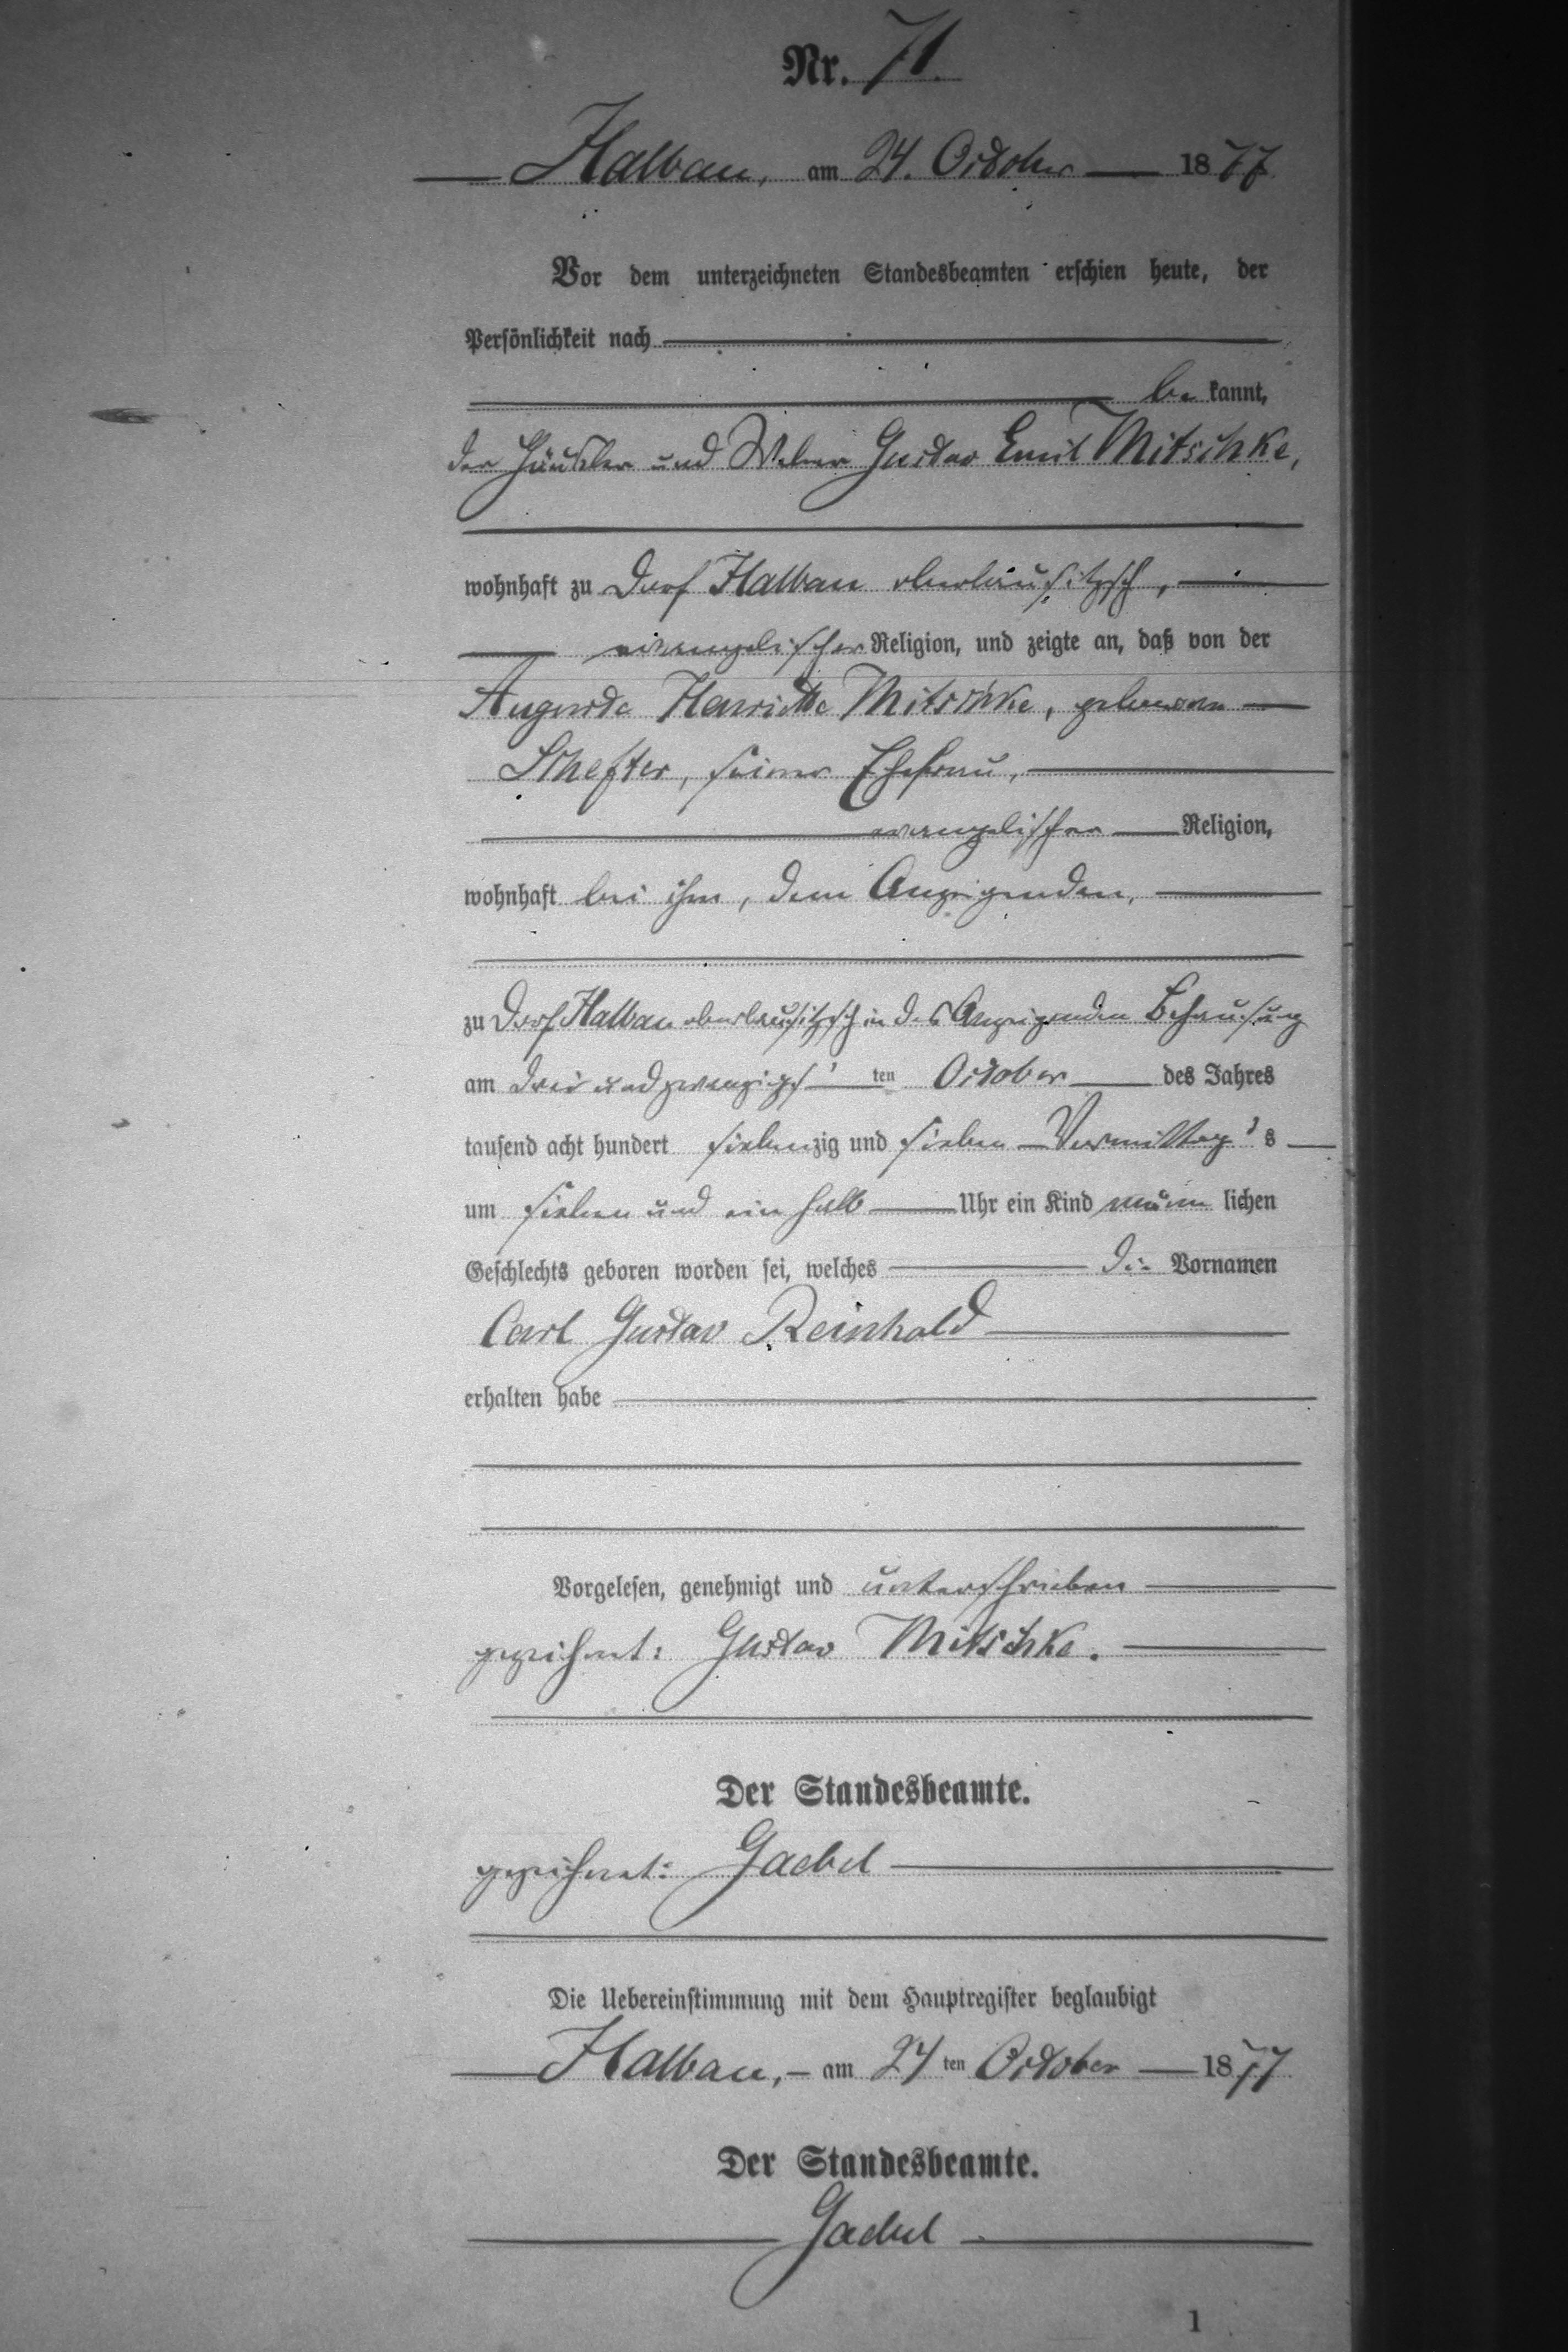 Nr. 71.
Halbau, am 24. October 1877
Vor dem unterzeichneten Standesbeamten erschien heute, der
Persönlichkeit nach
be kannt,
der Häusler und Weber Gustav Emil Mitschke,
wohnhaft zu Dorf Halbau oberlausitzisch,
evangelischer Religion, und zeigte an, daß von der
Auguste Henriette Mitschke, geborenen
Schefter, seiner Ehefrau,
evangelischer Religion,
wohnhaft bei ihm, dem Anzeigenden,
zu Dorf Halbau oberlausitzisch in des Anzeigenden Behausung
am drei und zwanzigs ten October des Jahres
tausend acht hundert siebenzig und sieben Vormittag s
um sieben und ein halb Uhr ein Kind männ lichen
Geschlechts geboren worden sei, welches die Vornamen
Carl Gustav Reinhold
erhalten habe
Vorgelesen, genehmigt und unterschrieben
gezeichnet: Gustav Mitschke.
Der Standesbeamte.
gezeichnet: Gaebel
Die Uebereinstimmung mit dem Hauptregister beglaubigt
Halbau, am 24 ten October 1877
Der Standesbeamte.
Gaebel
1